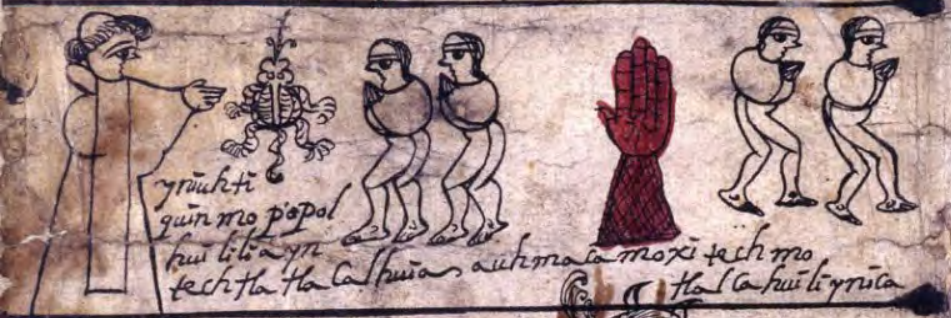 yniuh ti
quin mo popol
hui lilia yn
tech tla tla calhuia auh ma camo xi tech mo
tlalca huili ynica